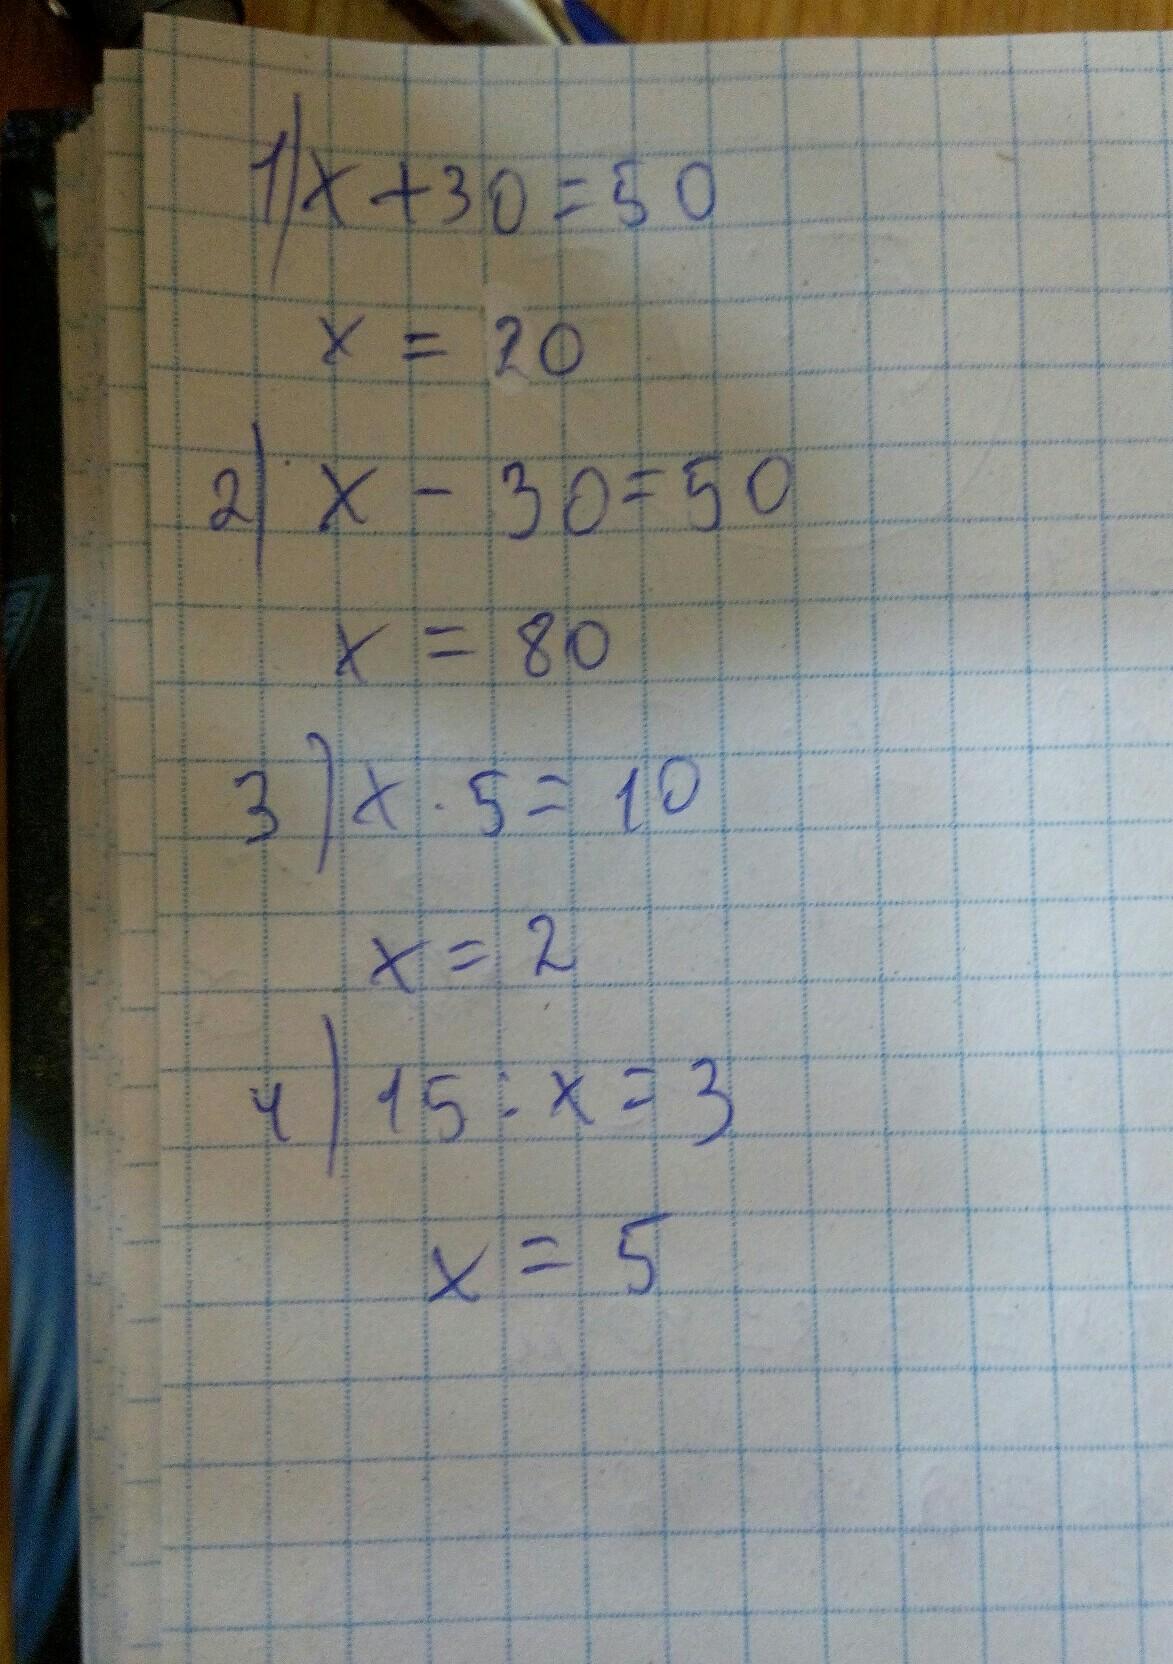 1) x + 30 = 50
x = 20
2) x - 30 = 50
x = 80
3) x · 5 = 10
x = 2
4) 15 : x = 3
x = 5